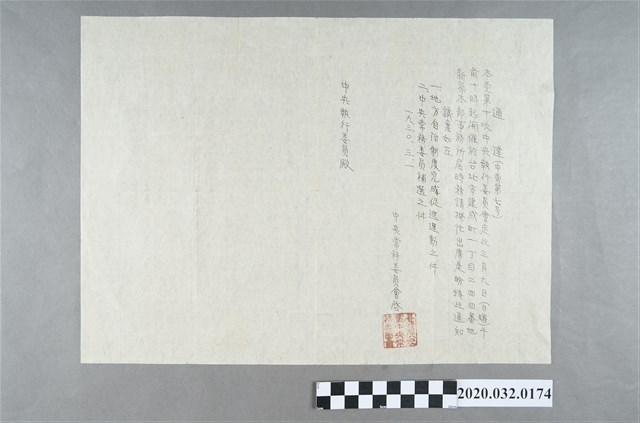 通達(中常第七号)
本黨第十次中央執行委員會定此三月九日(日曜)午
前十時起開催於台北市建成町一丁目二四四番地
新築本部事務所屆時務請撥忙出席是盼特此通知
議案如左
一、地方自治制度完成促進運動之件
二、中央常務委員補選之件
一九三〇、三、一
中央常務委員會啓
中央執行委員殿
2020.032.0174